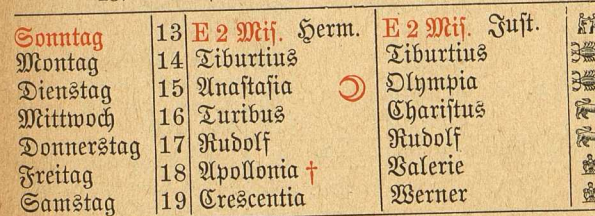 Sonntag 13 E 2 Mis. Herm. E 2 Mis. Just.
Montag 14 Tiburtius Tiburtius
Dienstag 15 Anastasia Olympia
Mittwoch 16 Turibus Charistus
Donnerstag 17 Rudolf Rudolf
Freitag 18 Apollonia † Valerie
Samstag 19 Crescentia Werner